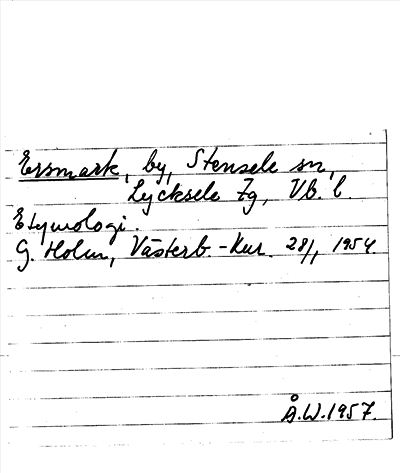 Ersmark, by, Stensele sn,
Lycksele tg, Vb. l.
Etymologi.
G. Holm, Västerb.-Kur. 28/1 1954.
Å.W. 1957.